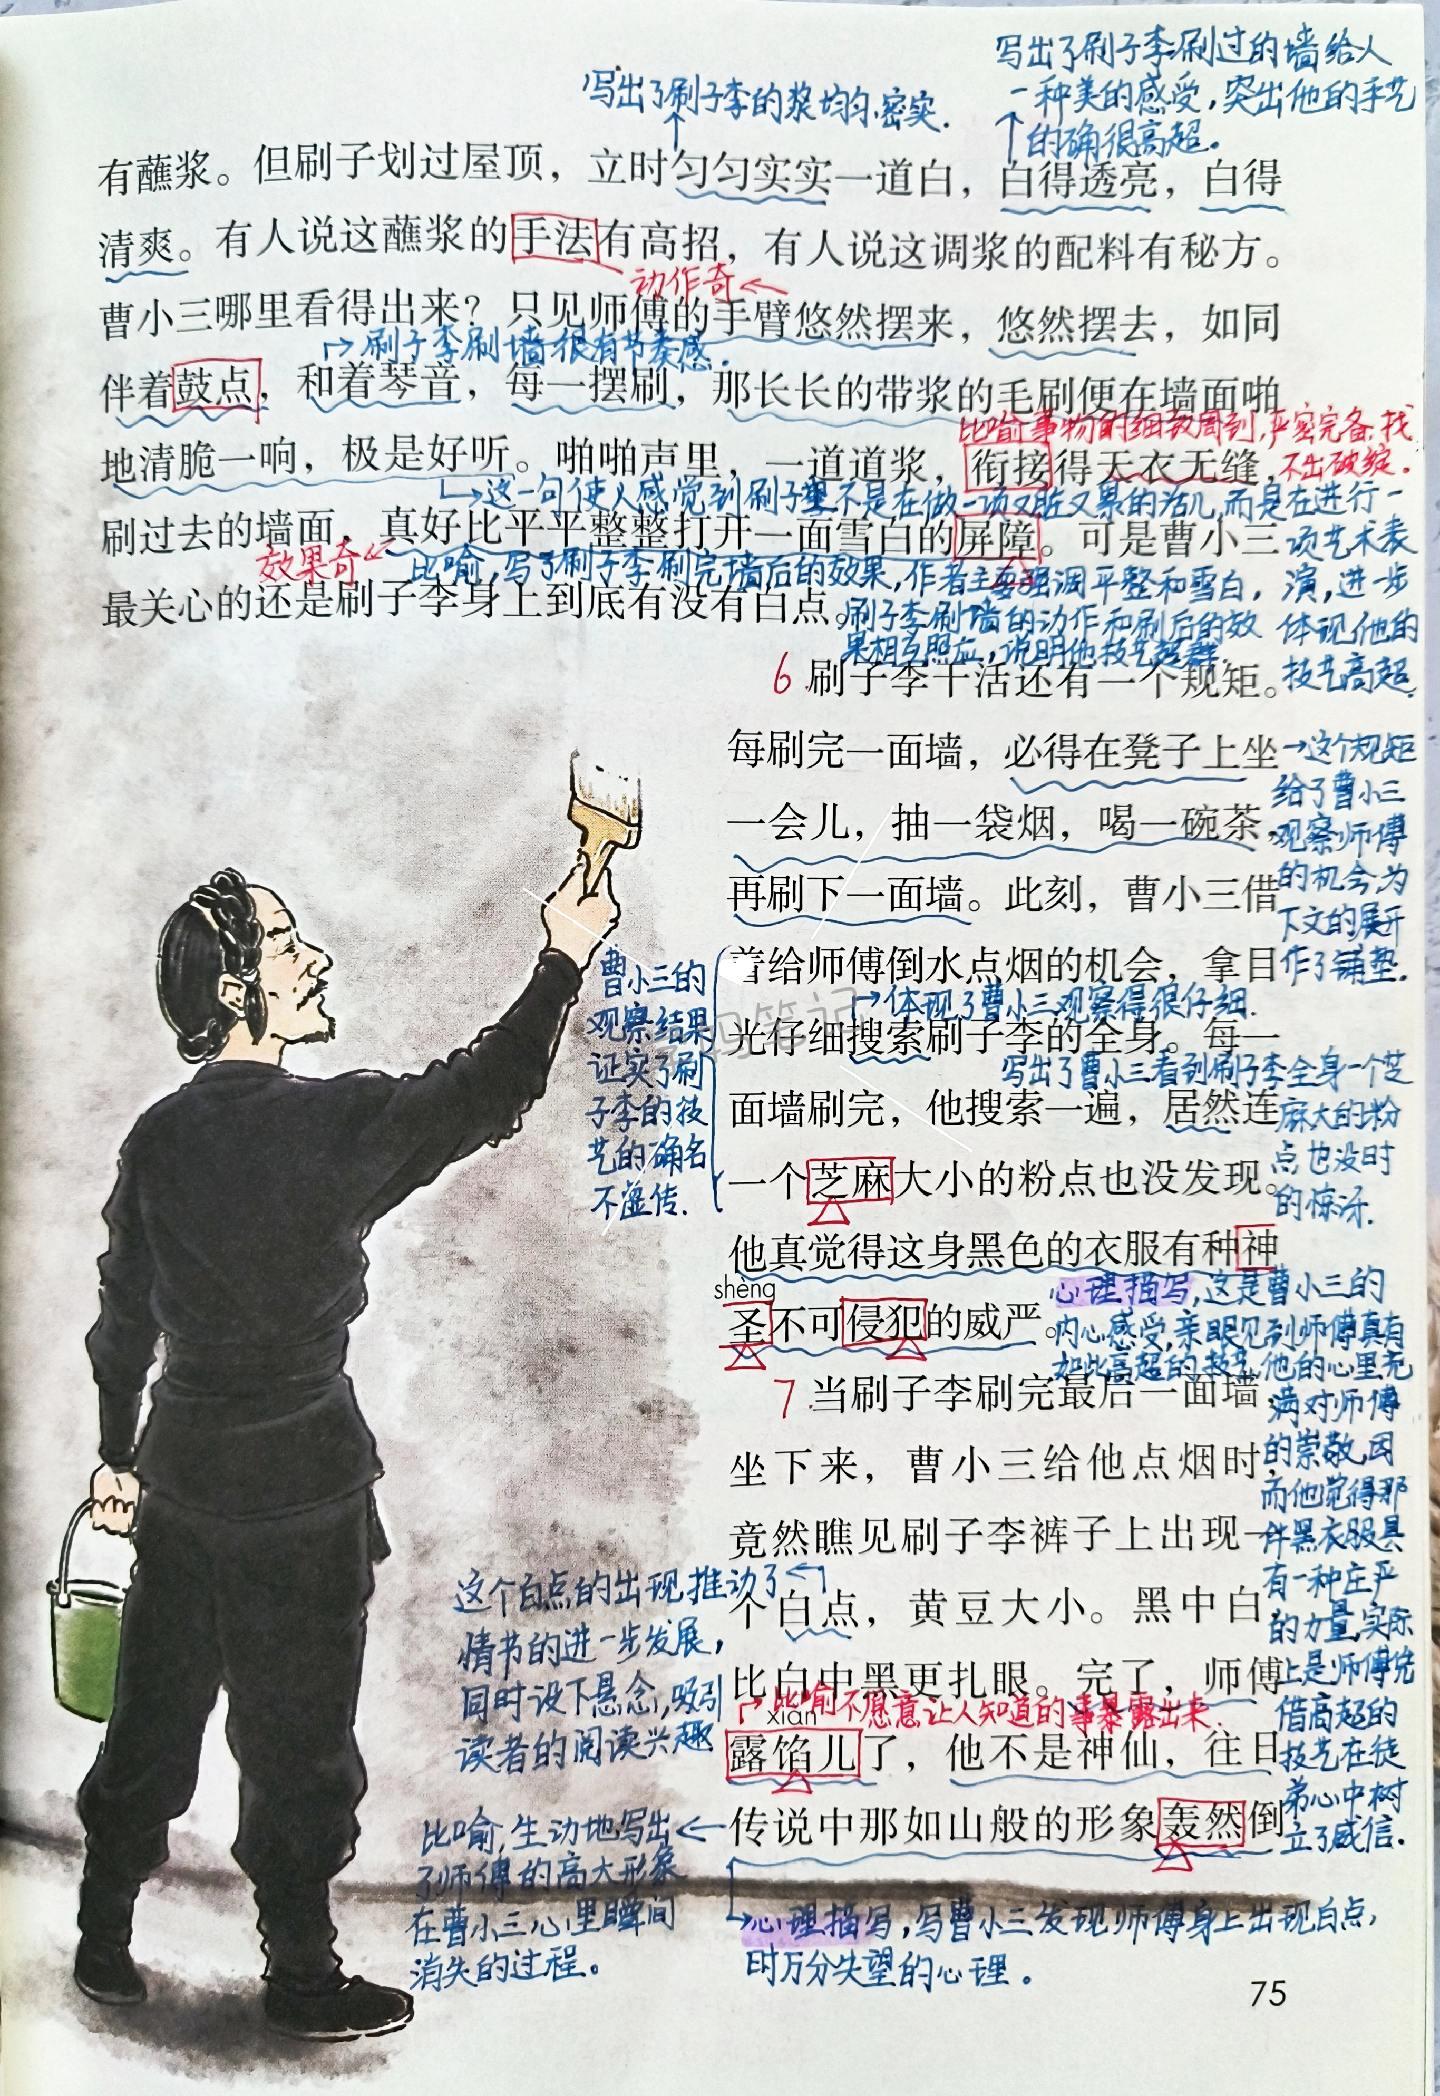 写出了刷子李刷过的墙给人
一种美的感受，突出他的手艺
的确很高超。
写出了刷子李的浆均匀、密实．
有蘸浆。但刷子划过屋顶，立时匀匀实实一道白，白得透亮，白得
清爽。有人说这蘸浆的手法有高招，有人说这调浆的配料有秘方。
动作奇
曹小三哪里看得出来？只见师傅的手臂悠然摆来，悠然摆去，如同
刷子李刷墙很有节奏感．
伴着鼓点，和着琴音，每一摆刷，那长长的带浆的毛刷便在墙面啪
比喻事物的细致周到，严密完备，找
不出破绽．
地清脆一响，极是好听。啪啪声里，一道道浆，衔接得天衣无缝，
这一句使人感觉到刷子李不是在做一项又脏又累的活儿，而是在进行一
项艺术表
演，进一步
体现他的
技艺高超．
刷过去的墙面，真好比平平整整打开一面雪白的屏障。可是曹小三
效果奇
比喻，写了刷子李刷完墙后的效果，作者主要强调平整和雪白，
刷子李刷墙的动作和刷后的效
果相互照应，说明他技艺超群．
最关心的还是刷子李身上到底有没有白点。
6 刷子李干活还有一个规矩。
每刷完一面墙，必得在凳子上坐
一会儿，抽一袋烟，喝一碗茶，
再刷下一面墙。此刻，曹小三借
这个规矩
给了曹小三
观察师傅
的机会，为
下文的展开
作了铺垫．
着给师傅倒水点烟的机会，拿目
体现了曹小三观察得很仔细．
光仔细搜索刷子李的全身。每一
面墙刷完，他搜索一遍，居然连
一个芝麻大小的粉点也没发现。
曹小三的
观察结果
证实了刷
子李的技
艺的确名
不虚传．
写出了曹小三看到刷子李全身一个芝
麻大的粉
点也没时
的惊讶．
妈笔记
他真觉得这身黑色的衣服有种神
shèng
圣不可侵犯的威严。
心理描写，这是曹小三的
内心感受，亲眼见到师傅真有
如此高超的技艺，他的心里充
满对师傅
的崇敬，因
而他觉得那
件黑衣服具
有一种庄严
的力量，实际
上是师傅凭
借高超的
技艺在徒
弟心中树
立了威信．
7 当刷子李刷完最后一面墙
坐下来，曹小三给他点烟时，
竟然瞧见刷子李裤子上出现一
个白点，黄豆大小。黑中白，
这个白点的出现推动了
情节的进一步发展，
同时设下悬念，吸引
读者的阅读兴趣
比白中黑更扎眼。完了，师傅
比喻不愿意让人知道的事暴露出来．
xiàn
露馅儿了，他不是神仙，往日
传说中那如山般的形象轰然倒
比喻，生动地写出
了师傅的高大形象
在曹小三心里瞬间
消失的过程。
心理描写，写曹小三发现师傅身上出现白点，
时万分失望的心理。
75